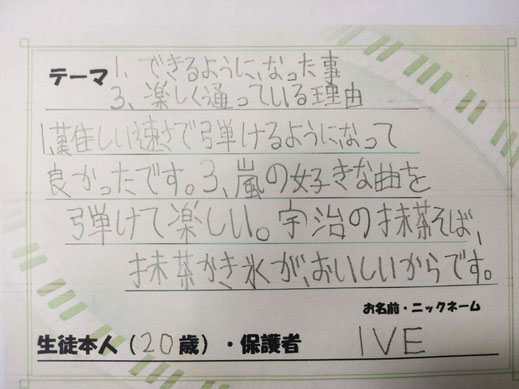 テーマ 1、できるように、なった事
3、楽しく通っている理由
1、難しい速さで弾けるようになって
良かったです。3、嵐の好きな曲を
弾けて楽しい。宇治の抹茶そば、
抹茶かき氷が、おいしいからです。
お名前・ニックネーム
生徒本人（20歳）・保護者 IVE